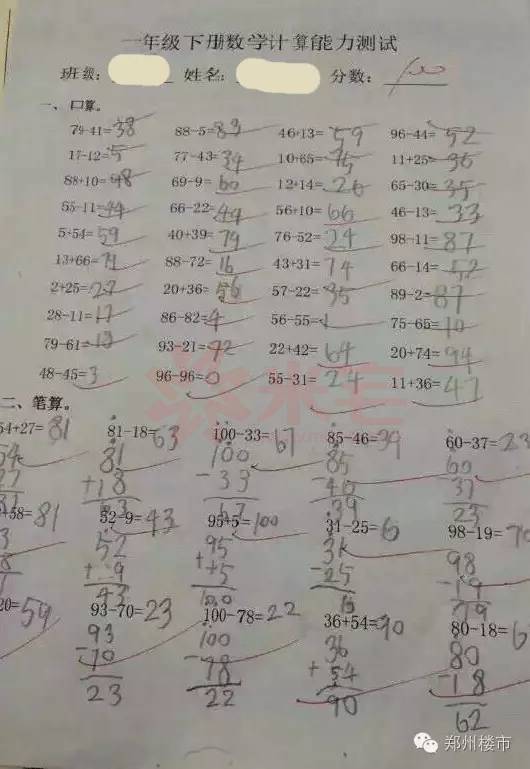 一年级下册数学计算能力测试
班级: 姓名: 分数: 100
一、口算。
79-41=38 88-5=83 46+13=59 96-44=52
17-12=5 77-43=34 10+65=75 11+25=36
88+10=98 69-9=60 12+14=26 65-30=35
55-11=44 66-22=44 56+10=66 46-13=33
5+54=59 40+39=79 76-52=24 98-11=87
13+66=79 88-72=16 43+31=74 66-14=52
2+25=27 20+36=56 57-22=35 89-2=87
28-11=17 86-82=4 56-55=1 75-65=10
79-61=18 93-21=72 22+42=64 20+74=94
48-45=3 96-96=0 55-31=24 11+36=47
二、笔算。
54+27=81 81-18=63 100-33=67 85-46=39 60-37=23
54 81 100 85 60
27 +18 -33 -46 37
81 63 67 39 23
+58=81 52-9=43 95+5=100 31-25=6 98-19=79
3 52 95 31 98
8 +9 +5 -25 -19
43 100 6 79
20=59 93-70=23 100-78=22 36+54=90 80-18=6
93 100 36 80
-70 -78 +54 -18
23 22 90 62
郑州楼市